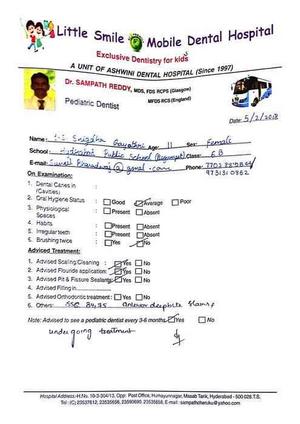 Little Smile Mobile Dental Hospital
Exclusive Dentistry for kids
A UNIT OF ASHWINI DENTAL HOSPITAL (Since 1997)
Dr. SAMPATH REDDY, MDS, FDS RCPS (Glasgow)
MFDS RCS (England)
Pediatric Dentist
Date: 5/2/2018
Name: Gayathri Age: 11 Sex: Female
School: Hyderabad Public School (Begumpet) Class: 6B
E-mail: @ gmail.com Phone:
On Examination:
1. Dental Caries in :
(Cavities)
2. Oral Hygiene Status : Good Average Poor
3. Physiological : Present Absent
Spaces
4. Habits : Present Absent
5. Irregular teeth : Present Absent
5. Brushing twice : Yes No
Advised Treatment:
1. Advised Scaling/Cleaning : Yes No
2. Advised Flouride application: Yes No
3. Advised Pit & Fissure Sealants: Yes No
4. Advised Filling in
5. Advised Orthodontic treatment : Yes No
6. Others: SSC 84,75
Note: Advised to see a pediatric dentist every 3-6 months Yes No
undergoing treatment
Hospital Address:-H.No. 10-3-304/13, Opp: Post Office, Humayunnagar, Masab Tank, Hyderabad - 500 028 T.S.
Tel: (C) 23537612, 23535656, 23590690 23535656, E-mail : sampathcheruku@yahoo.com